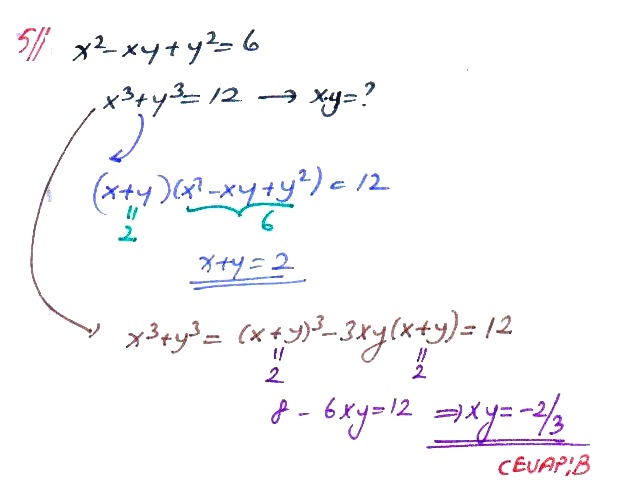 5// x²-xy+y²=6
x³+y³=12 → x.y=?
(x+y)(x²-xy+y²)=12
" 6
2
x+y=2
x³+y³=(x+y)³-3xy(x+y)=12
" "
2 2
8-6xy=12 ⇒xy=-2/3
CEVAP:B